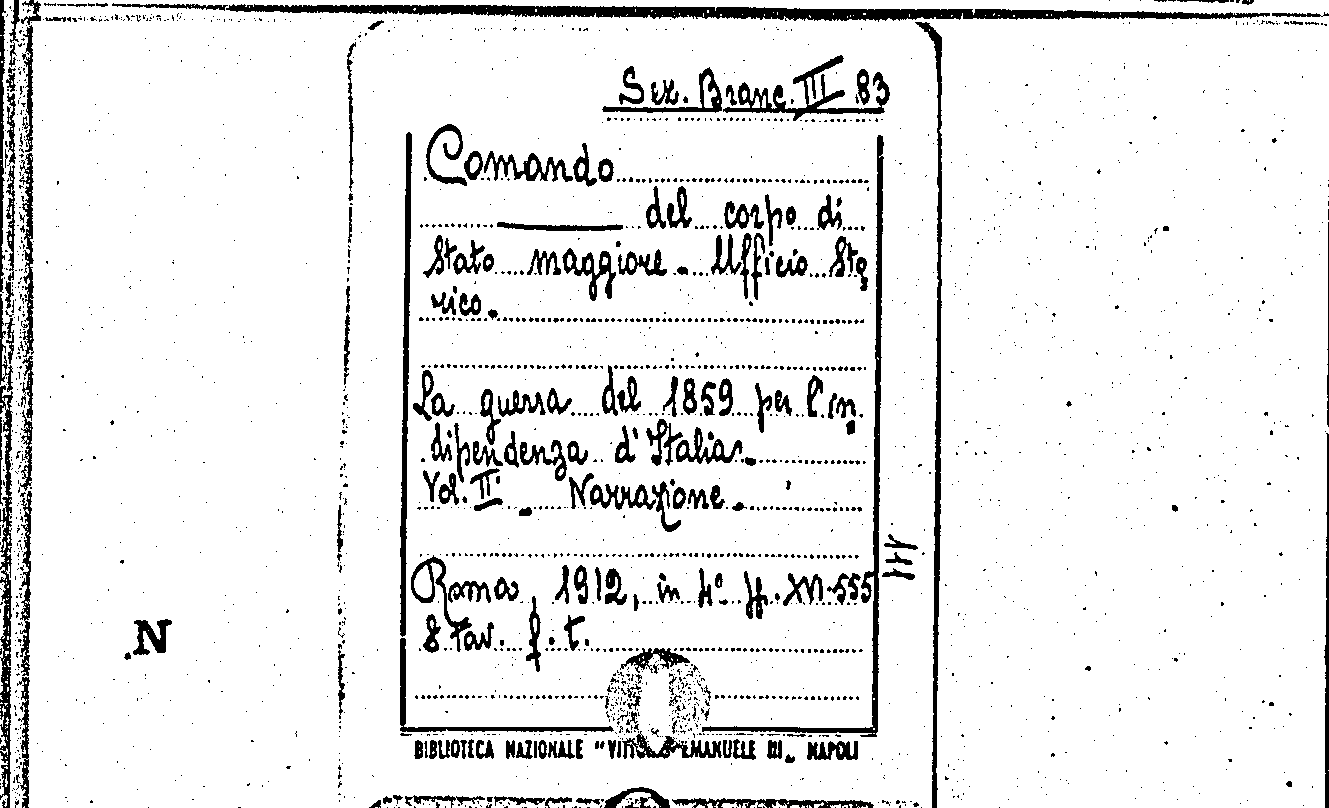 Sez. Branc. III 83
Comando
del corpo di
Stato maggiore. Ufficio Sto
rico.
La guerra del 1859 per l'in
dipendenza d'Italia.
Vol. II. Narrazione.
Roma, 1912, in 4º pp. XVI-555
8 Tav. f. t.
N
BIBLIOTECA NAZIONALE "VITTORIO EMANUELE III" NAPOLI